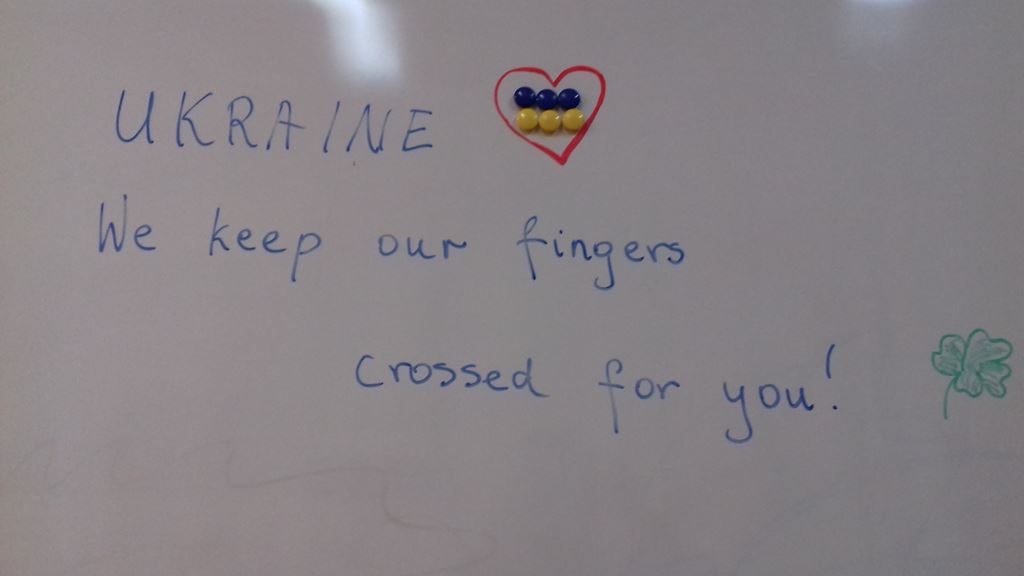 UKRAINE
We keep our fingers
crossed for you!